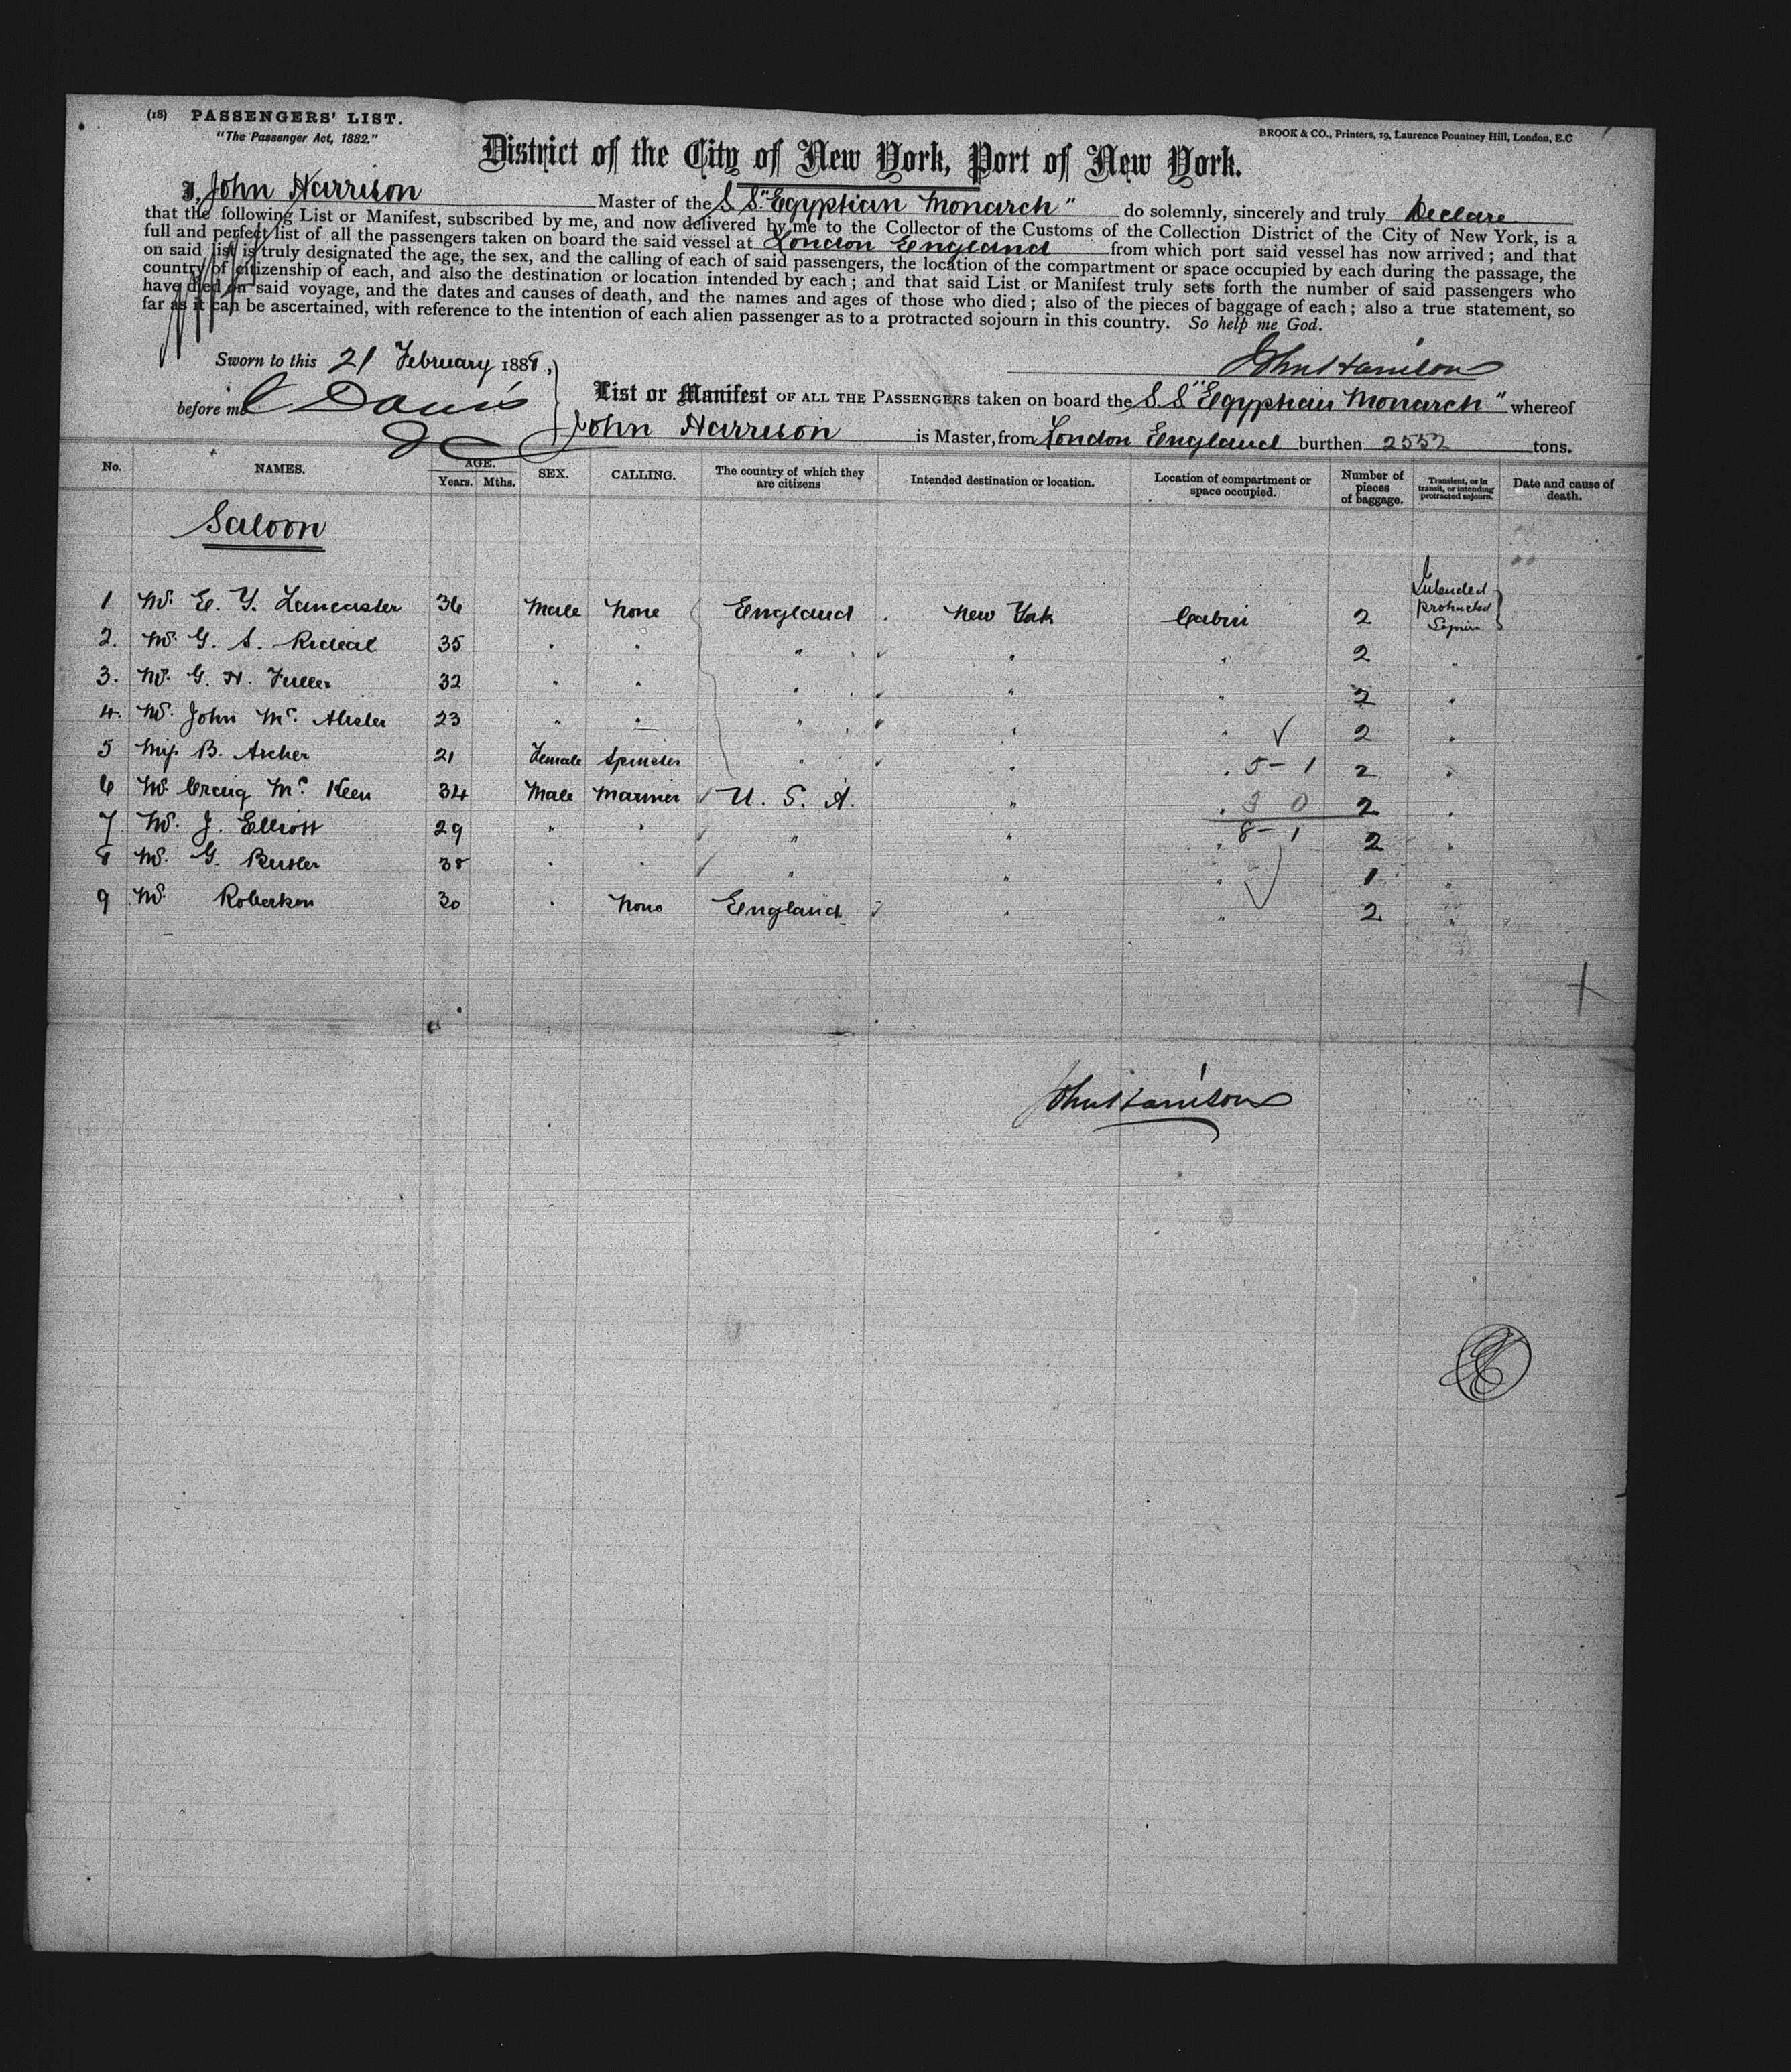 (18) PASSENGERS' LIST.
"The Passenger Act, 1882."
BROOK & CO., Printers, 19, Laurence Pountney Hill, London, E.C
District of the City of New York, Port of New York.
I, John Harrison Master of the S.S. "Egyptian Monarch" do solemnly, sincerely and truly Declare
that the following List or Manifest, subscribed by me, and now delivered by me to the Collector of the Customs of the Collection District of the City of New York, is a
full and perfect list of all the passengers taken on board the said vessel at London England from which port said vessel has now arrived; and that
on said list is truly designated the age, the sex, and the calling of each of said passengers, the location of the compartment or space occupied by each during the passage, the
country of citizenship of each, and also the destination or location intended by each; and that said List or Manifest truly sets forth the number of said passengers who
have died on said voyage, and the dates and causes of death, and the names and ages of those who died; also of the pieces of baggage of each; also a true statement, so
far as it can be ascertained, with reference to the intention of each alien passenger as to a protracted sojourn in this country. So help me God.
Sworn to this 21 February 1888, John Harrison
before me C Davis
List or Manifest OF ALL THE PASSENGERS taken on board the S.S. "Egyptian Monarch" whereof
John Harrison is Master, from London England burthen 2552 tons.
No. NAMES. AGE. Years. Mths. SEX. CALLING. The country of which they are citizens Intended destination or location. Location of compartment or space occupied. Number of pieces of baggage. Transient, or in transit, or intending protracted sojourn. Date and cause of death.
Saloon
1 Mr. E. Y. Lancaster 36 Male None England New York Cabin 2 Intended protracted Sojourn
2. Mr. G. S. Rideal 35 " " " " " 2 "
3. Mr. G. H. Fuller 32 " " " " " 2 "
4. Mr. John Mc. Alister 23 " " " " " 2 "
5 Miss B. Archer 21 Female Spinster " " " 5-1 2 "
6 Mr Craig Mc. Keen 34 Male Mariner U. S. A. " " 3 0 2 "
7 Mr. J. Elliott 29 " " " " " 8-1 2 "
8 Mr. G. 38 " " " " " 1 "
9 Mr. Robertson 30 " None England " " 2 "
John Harrison